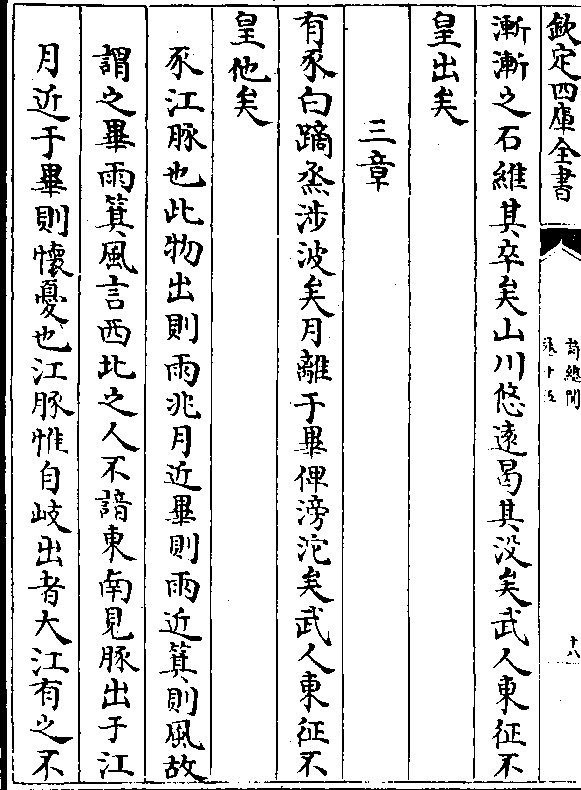 欽定四庫全書
詩總聞
卷十五
十八
漸漸之石維其卒矣山川悠遠曷其没矣武人東征不
皇出矣
三章
有豕白蹢烝涉波矣月離于畢俾滂沱矣武人東征不
皇他矣
豕江豚也此物出則雨兆月近畢則雨近箕則風故
謂之畢雨箕風言西北之人不諳東南見豚出于江
月近于畢則懷憂也江豚惟自岐出者大江有之不